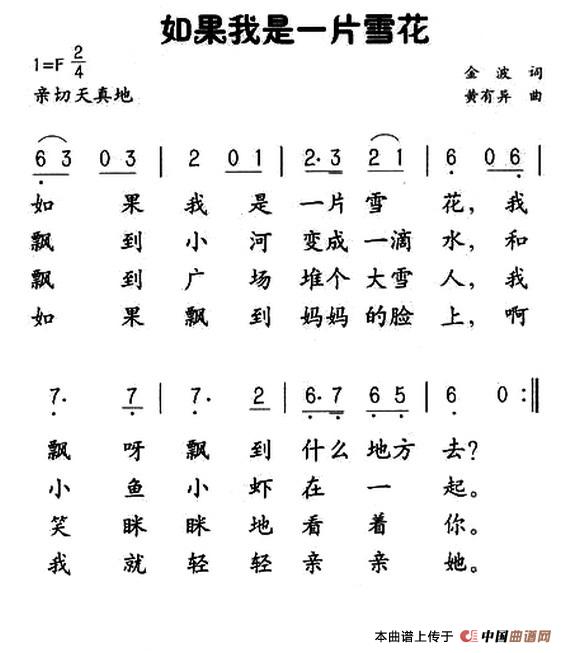 如果我是一片雪花
1=F 2/4
金波 词
亲切天真地
黄有异 曲
6 3 0 3 | 2 0 1 | 2·3 2 1 | 6 0 6 |
如果我是一片雪花，我
飘到小河变成一滴水，和
飘到广场堆个大雪人，我
如果飘到妈妈的脸上，啊
7· 7 | 7· 2 | 6·7 6 5 | 6 0 :‖
飘呀飘到什么地方去？
小鱼小虾在一起。
笑眯眯地看着你。
我就轻轻亲亲她。
本曲谱上传于 中国曲谱网